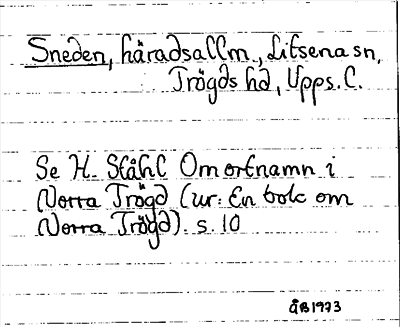 Sneden, häradsallm., Litslena sn,
Trögds hd, Upps. l.
Se H. Ståhl Om ortnamn i
Norra Trögd (ur: En bok om
Norra Trögd). s. 10
ÅB1973